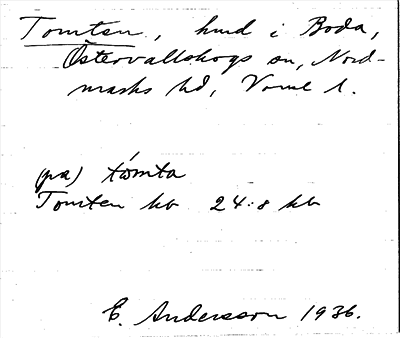 Tomten, hmd i Boda,
Östervallskogs sn, Nord-
marks hd, Vrml l.
(på) tómta
Tomten kb 24:8 kb
E. Andersson 1936.